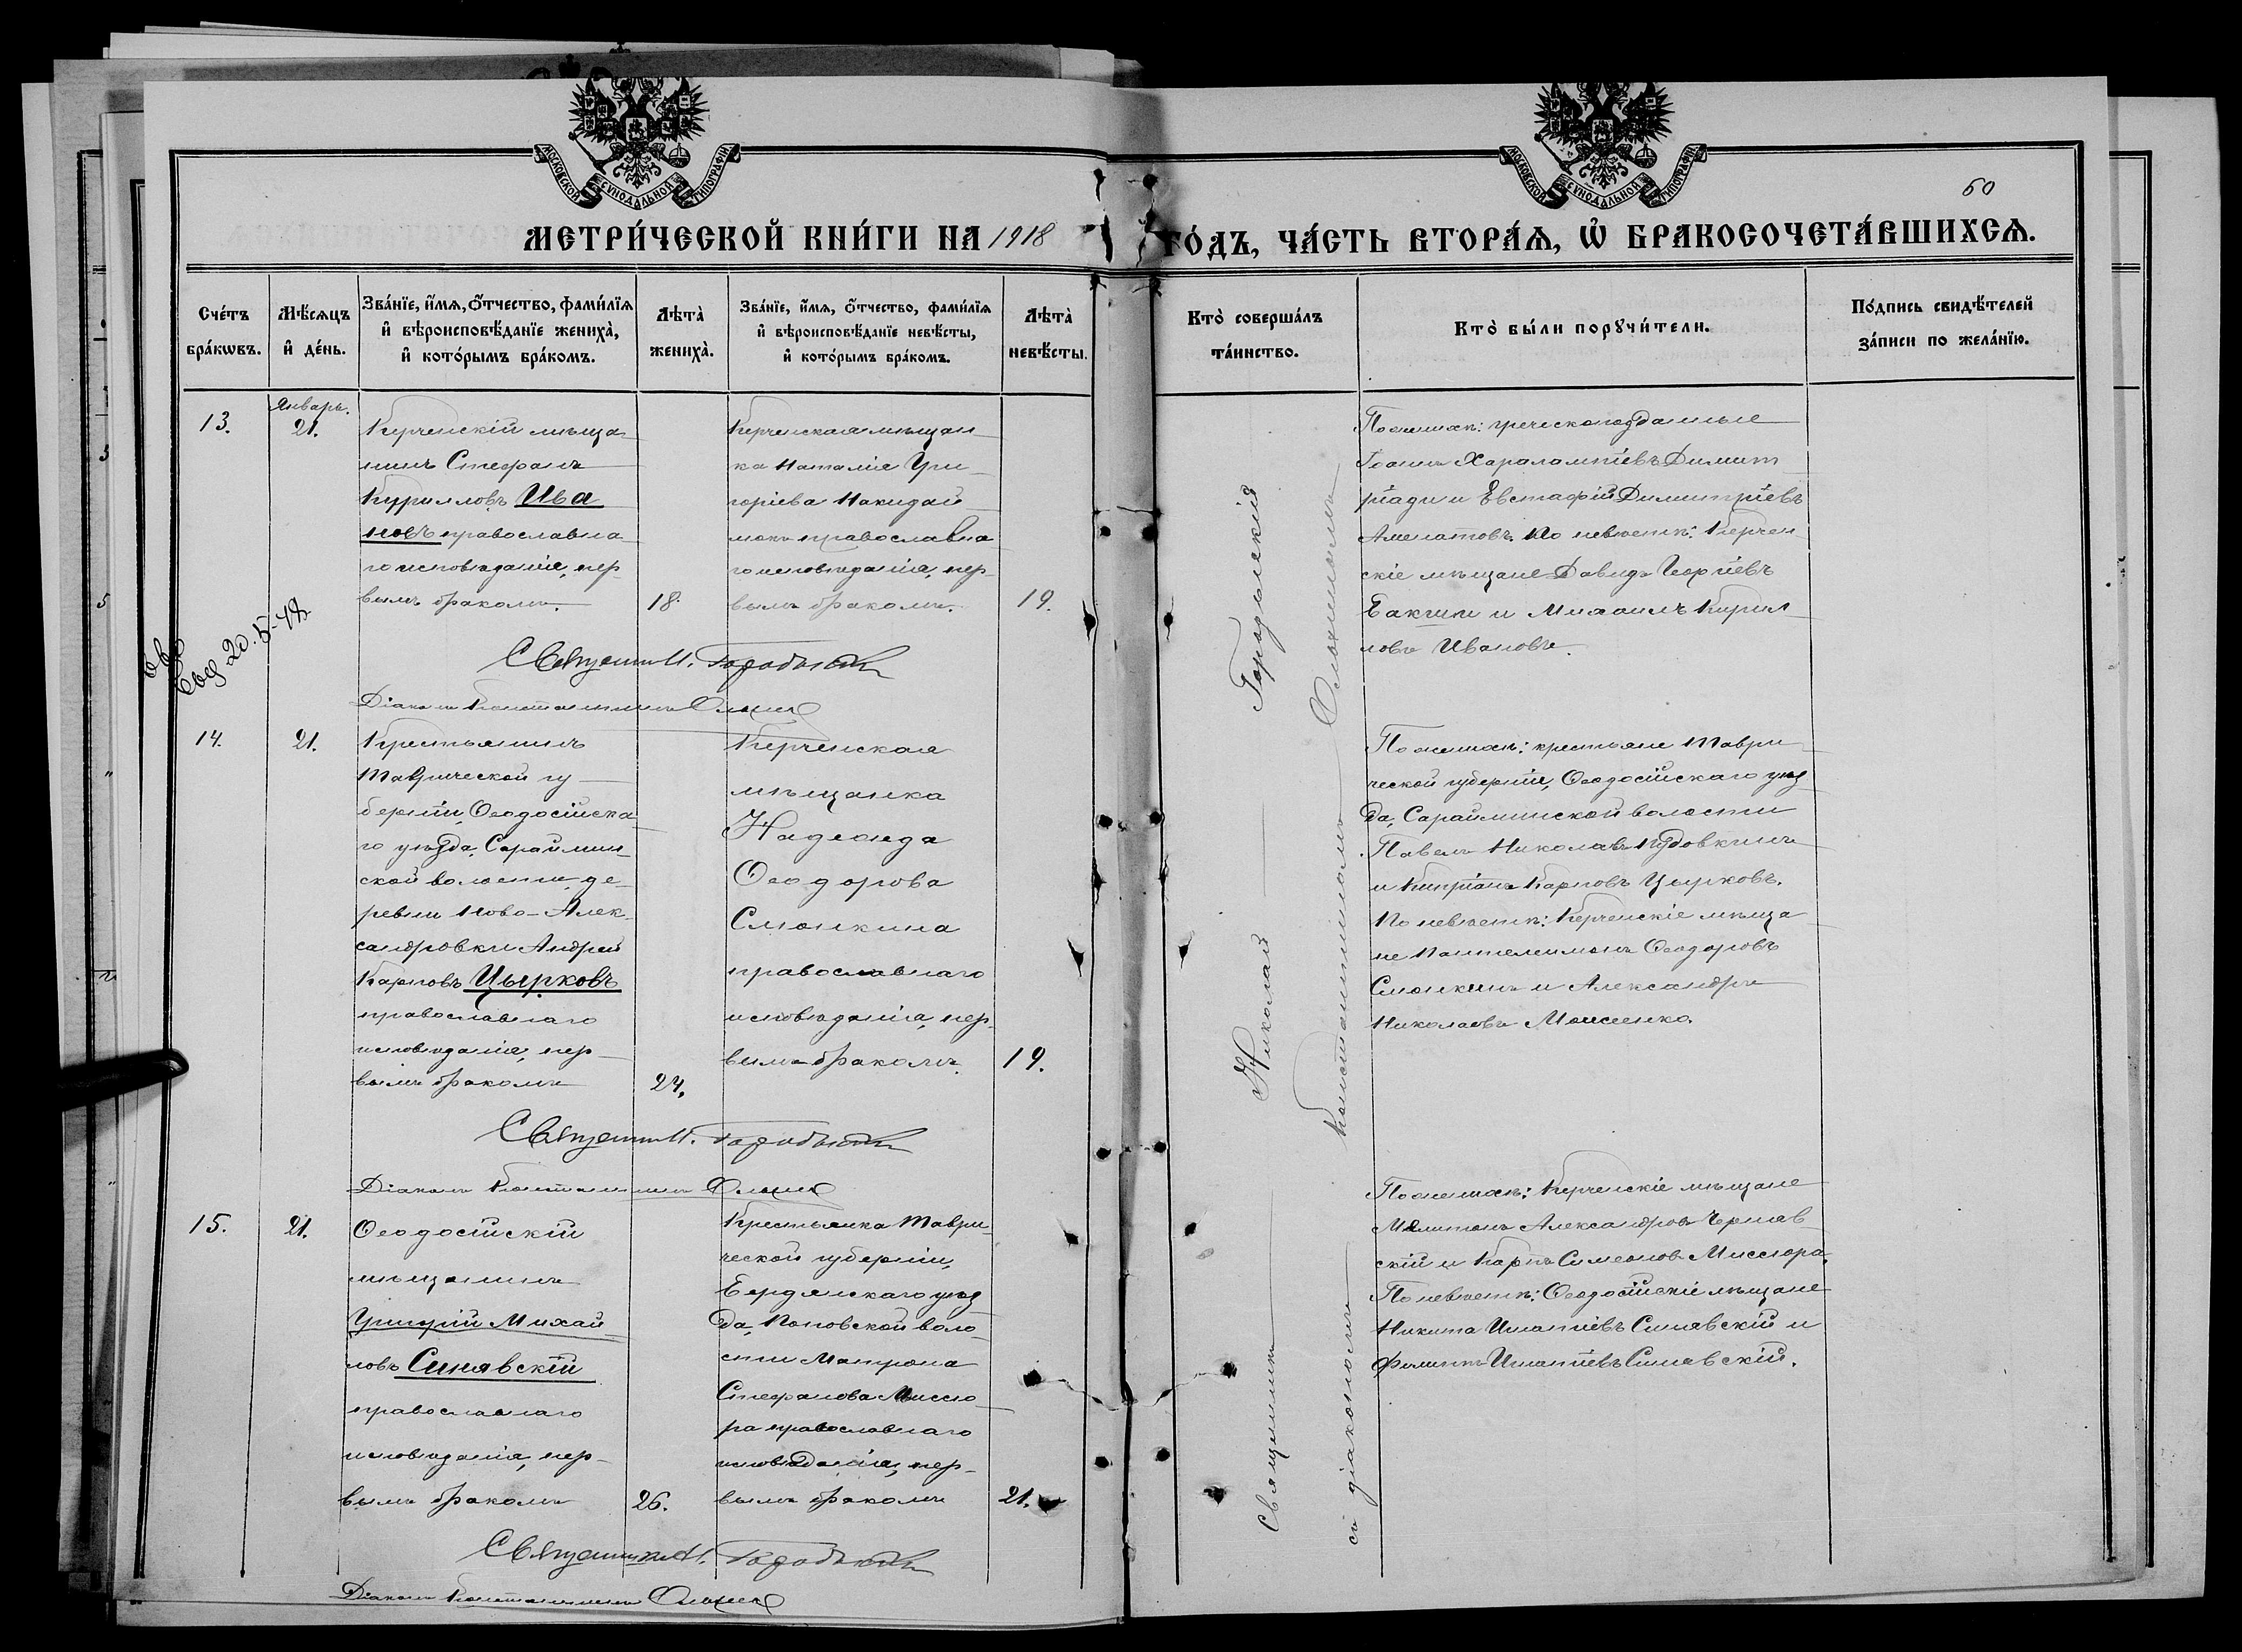 МОСКОВСКОЙ СѴНОДАЛЬНОЙ ТИПОГРАФІИ
МОСКОВСКОЙ СѴНОДАЛЬНОЙ ТИПОГРАФІИ
60
МЕТРИ́ЧЕСКОЙ КНИ́ГИ НА 1918 ГО́ДЪ, ЧА́СТЬ ВТОРА́Ѧ, Ѡ҆ БРАКОСОЧЕТА́ВШИХСѦ.
Сче́тъ бра́кѡвъ.
Мѣ́сѧцъ и҆ де́нь.
Зва́нїе, и҆́мѧ, ѻ҆́тчество, фами́лїѧ и҆ вѣроисповѣ́данїе жениха̀, и҆ кото́рымъ бра́комъ.
Лѣта̀ жениха̀.
Зва́нїе, и҆́мѧ, ѻ҆́тчество, фами́лїѧ и҆ вѣроисповѣ́данїе невѣ́сты, и҆ кото́рымъ бра́комъ.
Лѣта̀ невѣ́сты.
Кто̀ соверша́лъ та́инство.
Кто̀ бы́ли порꙋчи́тели.
По́дпись свидѣ́телей за́писи по жела́нїю.
13.
Январь.
21.
Керченскій мѣща-
нинъ Стефанъ
Кирилловъ Ива
новъ православна
го исповѣданія, пер
вымъ бракомъ.
18.
Керченская мѣщан
ка Наталія Гри
горіева
православна
го исповѣданія, пер-
вымъ бракомъ.
19.
По женихѣ: греческоподданные
Іоаннъ Харалампіевъ Димит
ріади и Евстафій Димитріевъ
По невѣстѣ: Керчен
скіе мѣщане Давидъ Георгіевъ
и Михаилъ Кирил
ловъ Ивановъ.
20.5-48
Священникъ Н. Городынскій
Діаконъ Константинъ
14.
21.
Крестьянинъ
Таврической гу
берніи, Ѳеодосійска
го уѣзда, Сараймин
ской волости, де
ревни Ново-Алек
сандровки Андрей
Карповъ Цырковъ
православнаго
исповѣданія, пер
вымъ бракомъ
24.
Керченская
мѣщанка
Надежда
Ѳеодорова
Смонкина
православнаго
исповѣданія, пер
вымъ бракомъ.
19.
По женихѣ: крестьяне Таври
ческой губерніи, Ѳеодосійскаго уѣз
да, Сарайминской волости
Павелъ Николаевъ
и Кипріанъ Карповъ Цырковъ.
По невѣстѣ: Керченскіе мѣща
не Пантелимонъ Ѳеодоровъ
Смонкинъ и Александръ
Николаевъ Моисеенко.
Священникъ Н. Городынскій
Діаконъ Константинъ
15.
21.
Ѳеодосійскій
мѣщанинъ
Григорій Михай
ловъ Синявскій
православнаго
исповѣданія, пер-
вымъ бракомъ
26.
Крестьянка Таври-
ческой губерніи,
Бердянскаго уѣз
да, Поповской воло
сти Матрона
Стефанова Миссю
ра православнаго
исповѣданія, пер-
вымъ бракомъ
21.
По женихѣ: Керченскіе мѣщане
Мелитонъ Александровъ Черняв
скій и Карпъ Симеоновъ Миссюра.
По невѣстѣ: Ѳеодосійскіе мѣщане
Никита Игнатіевъ Синявскій и
Филиппъ Игнатіевъ Синявскій.
Священникъ Н. Городынскій
Діаконъ Константинъ
Священникъ Николай Городынскій
съ діакономъ Константиномъ